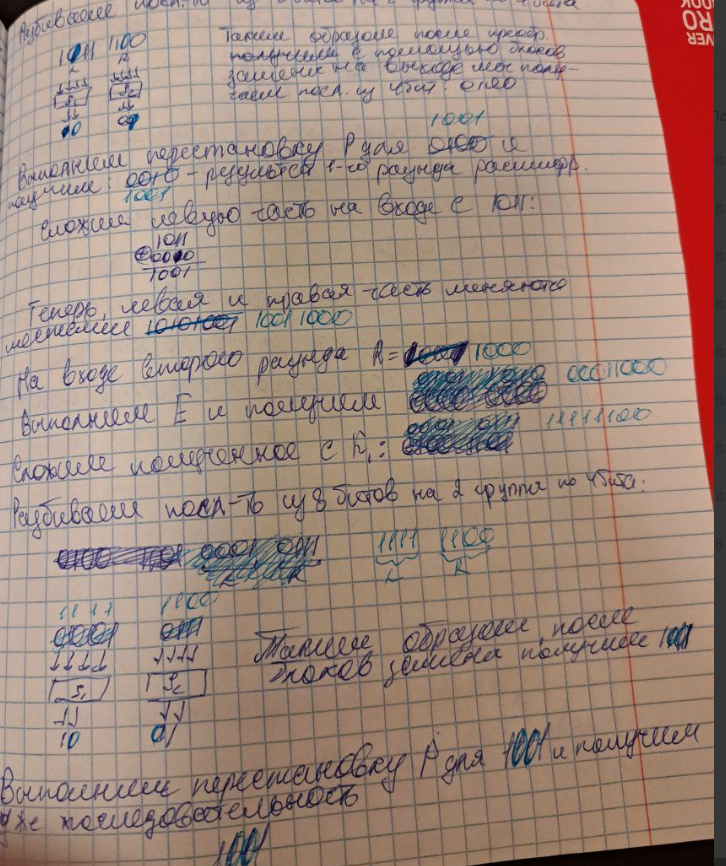 Разбиваем посл-ть из 8 битов на 2 группы по 4 бита
1011 1100
L R
S₁ S₂
10 01
Таким образом после преобр.
получили с помощью блоков
замены на выходе мы полу-
чаем посл. из 4 бит: 0100
1001
Выполним перестановку P для 0100 и
получим: 0010 - результат 1-го раунда расшифр.
1001
Сложим левую часть на входе с 1011:
1011
⊕0010
1001
Теперь, левая и правая часть меняются
местами 10101001 1001 1000
На входе второго раунда R= 1001 1000
Выполним E и получим 00011000
Сложим полученное с K₁: 11111100
Разбиваем посл-ть из 8 битов на 2 группы по 4 бита:
0001 0111 1111 1100
L R
1111 1100
0001 0111
S₁ S₂
10 01
Таким образом, после
блоков замены получили 1001
Выполним перестановку P для 1001 и получим
последовательность
1001